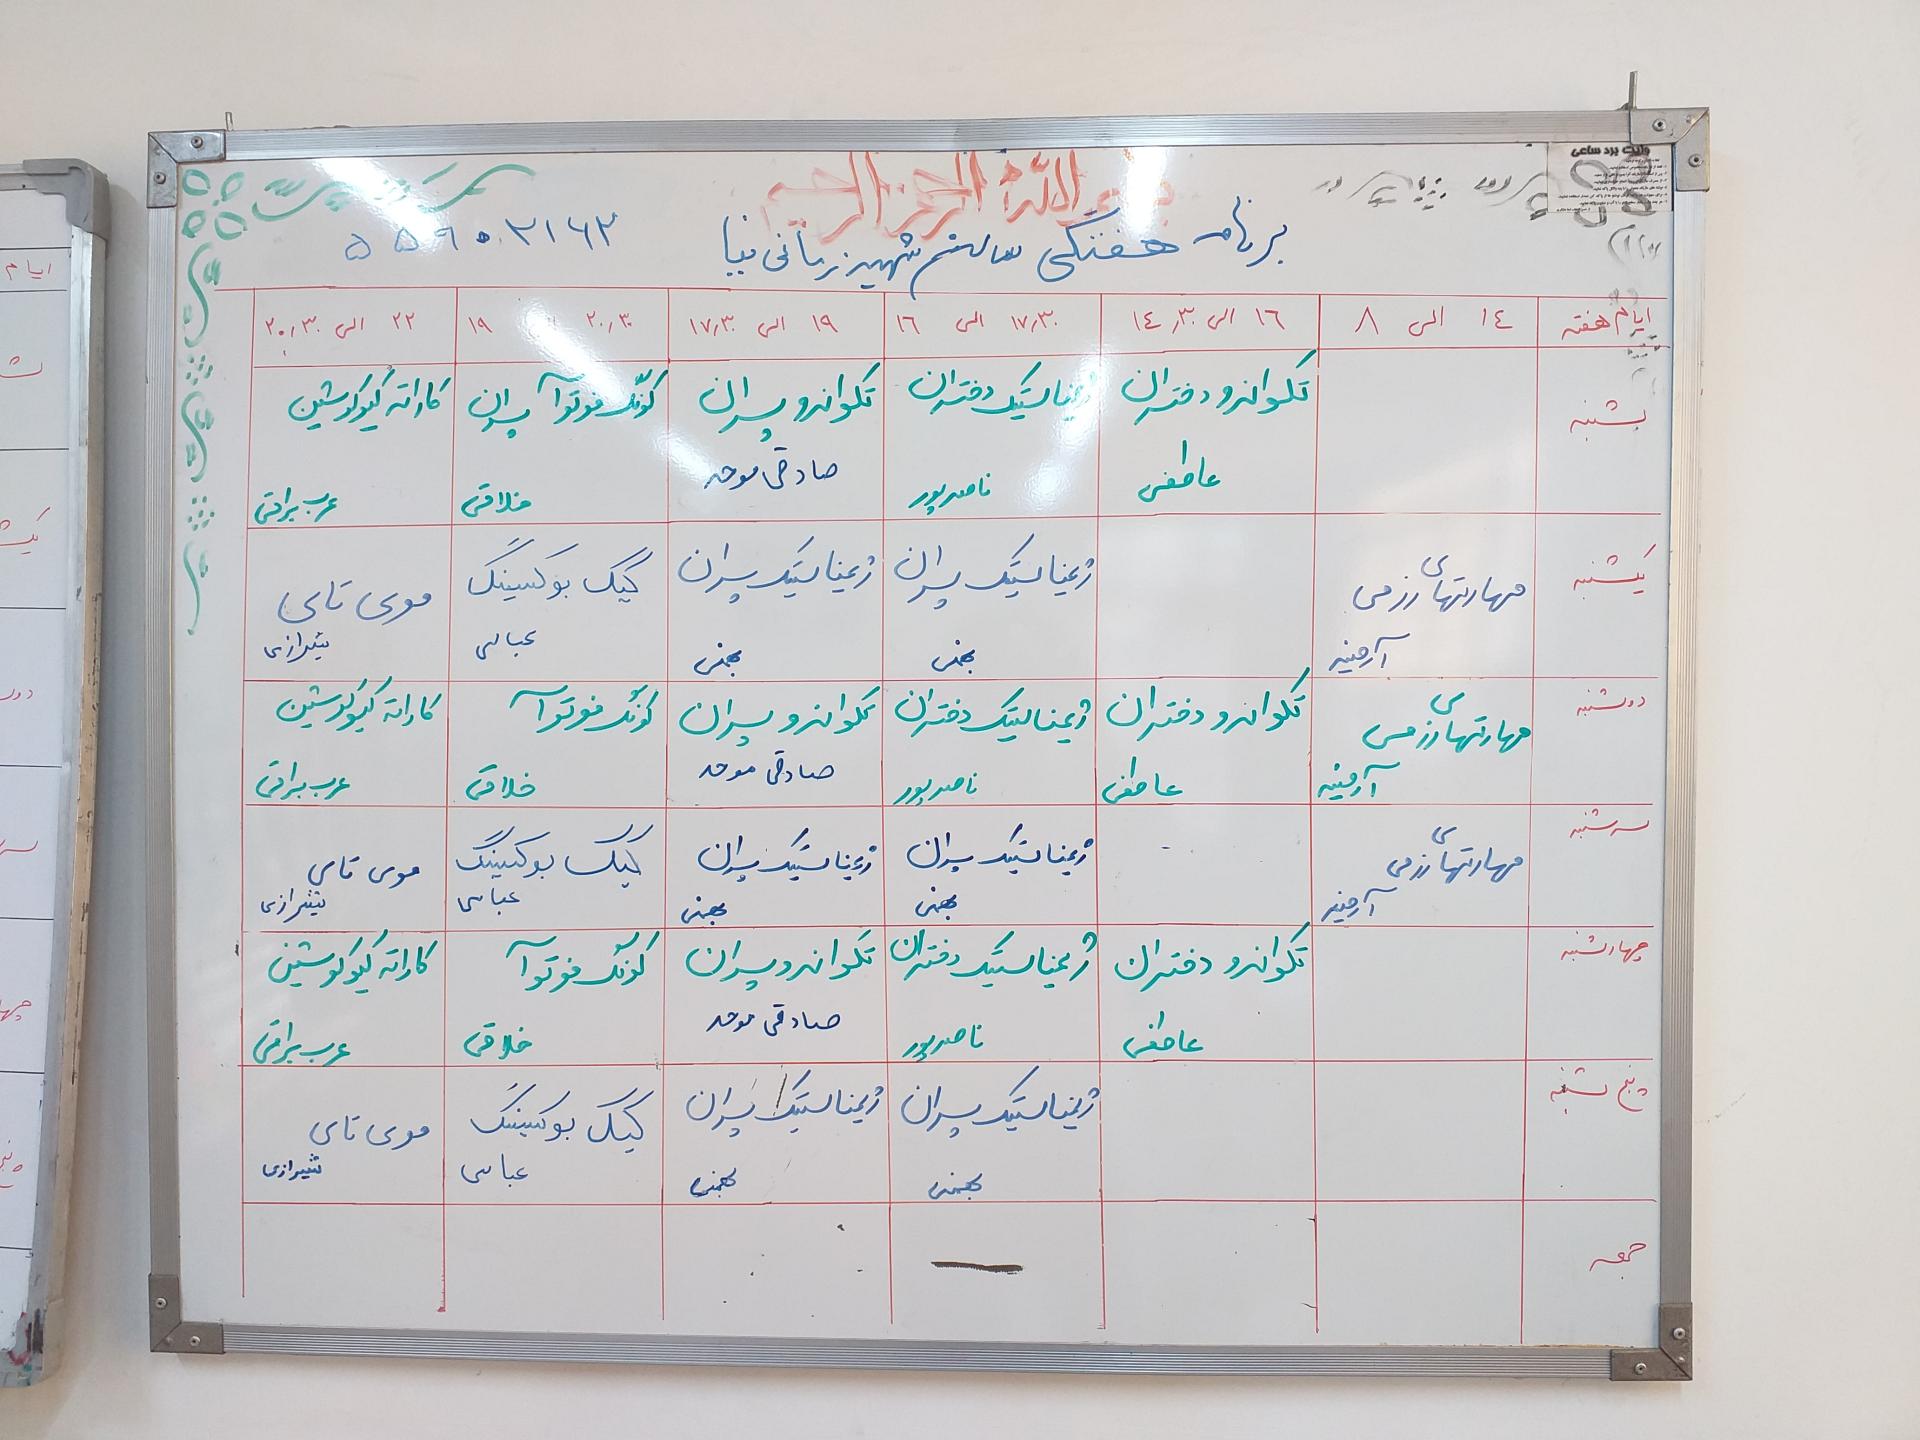 بسم الله الرحمن الرحیم
برنامه هفتگی سالن شهید زمانی نیا ۵۵۹۰۲۱۶۳
ایام هفته ۱۴ الی ۸ ۱۶ الی ۱۴٫۳۰ ۱۷٫۳۰ الی ۱۶ ۱۹ الی ۱۷٫۳۰ ۲۰٫۳۰ ۱۹ ۲۲ الی ۲۰٫۳۰
شنبه تکواندو دختران ژیمناستیک دختران تکواندو پسران کونگ فوتوآ پسران کاراته کیوکوشین
عاطفی ناصرپور صادقی موحد خلاقی عرب براقی
یکشنبه مهارتهای رزمی ژیمناستیک پسران ژیمناستیک پسران کیک بوکسینگ موی تای
آرمینه بهمنی بهمنی عباسی شیرازی
دوشنبه مهارتهای رزمی تکواندو دختران ژیمناستیک دختران تکواندو پسران کونگ فوتوآ کاراته کیوکوشین
آرمینه عاطفی ناصرپور صادقی موحد خلاقی عرب براقی
سه شنبه مهارتهای رزمی ژیمناستیک پسران ژیمناستیک پسران کیک بوکسینگ موی تای
آرمینه بهمنی بهمنی عباسی شیرازی
چهارشنبه تکواندو دختران ژیمناستیک دختران تکواندو پسران کونگ فوتوآ کاراته کیوکوشین
عاطفی ناصرپور صادقی موحد خلاقی عرب براقی
پنج شنبه ژیمناستیک پسران ژیمناستیک پسران کیک بوکسینگ موی تای
بهمنی بهمنی عباسی شیرازی
جمعه
وایت برد ساعی
ایام